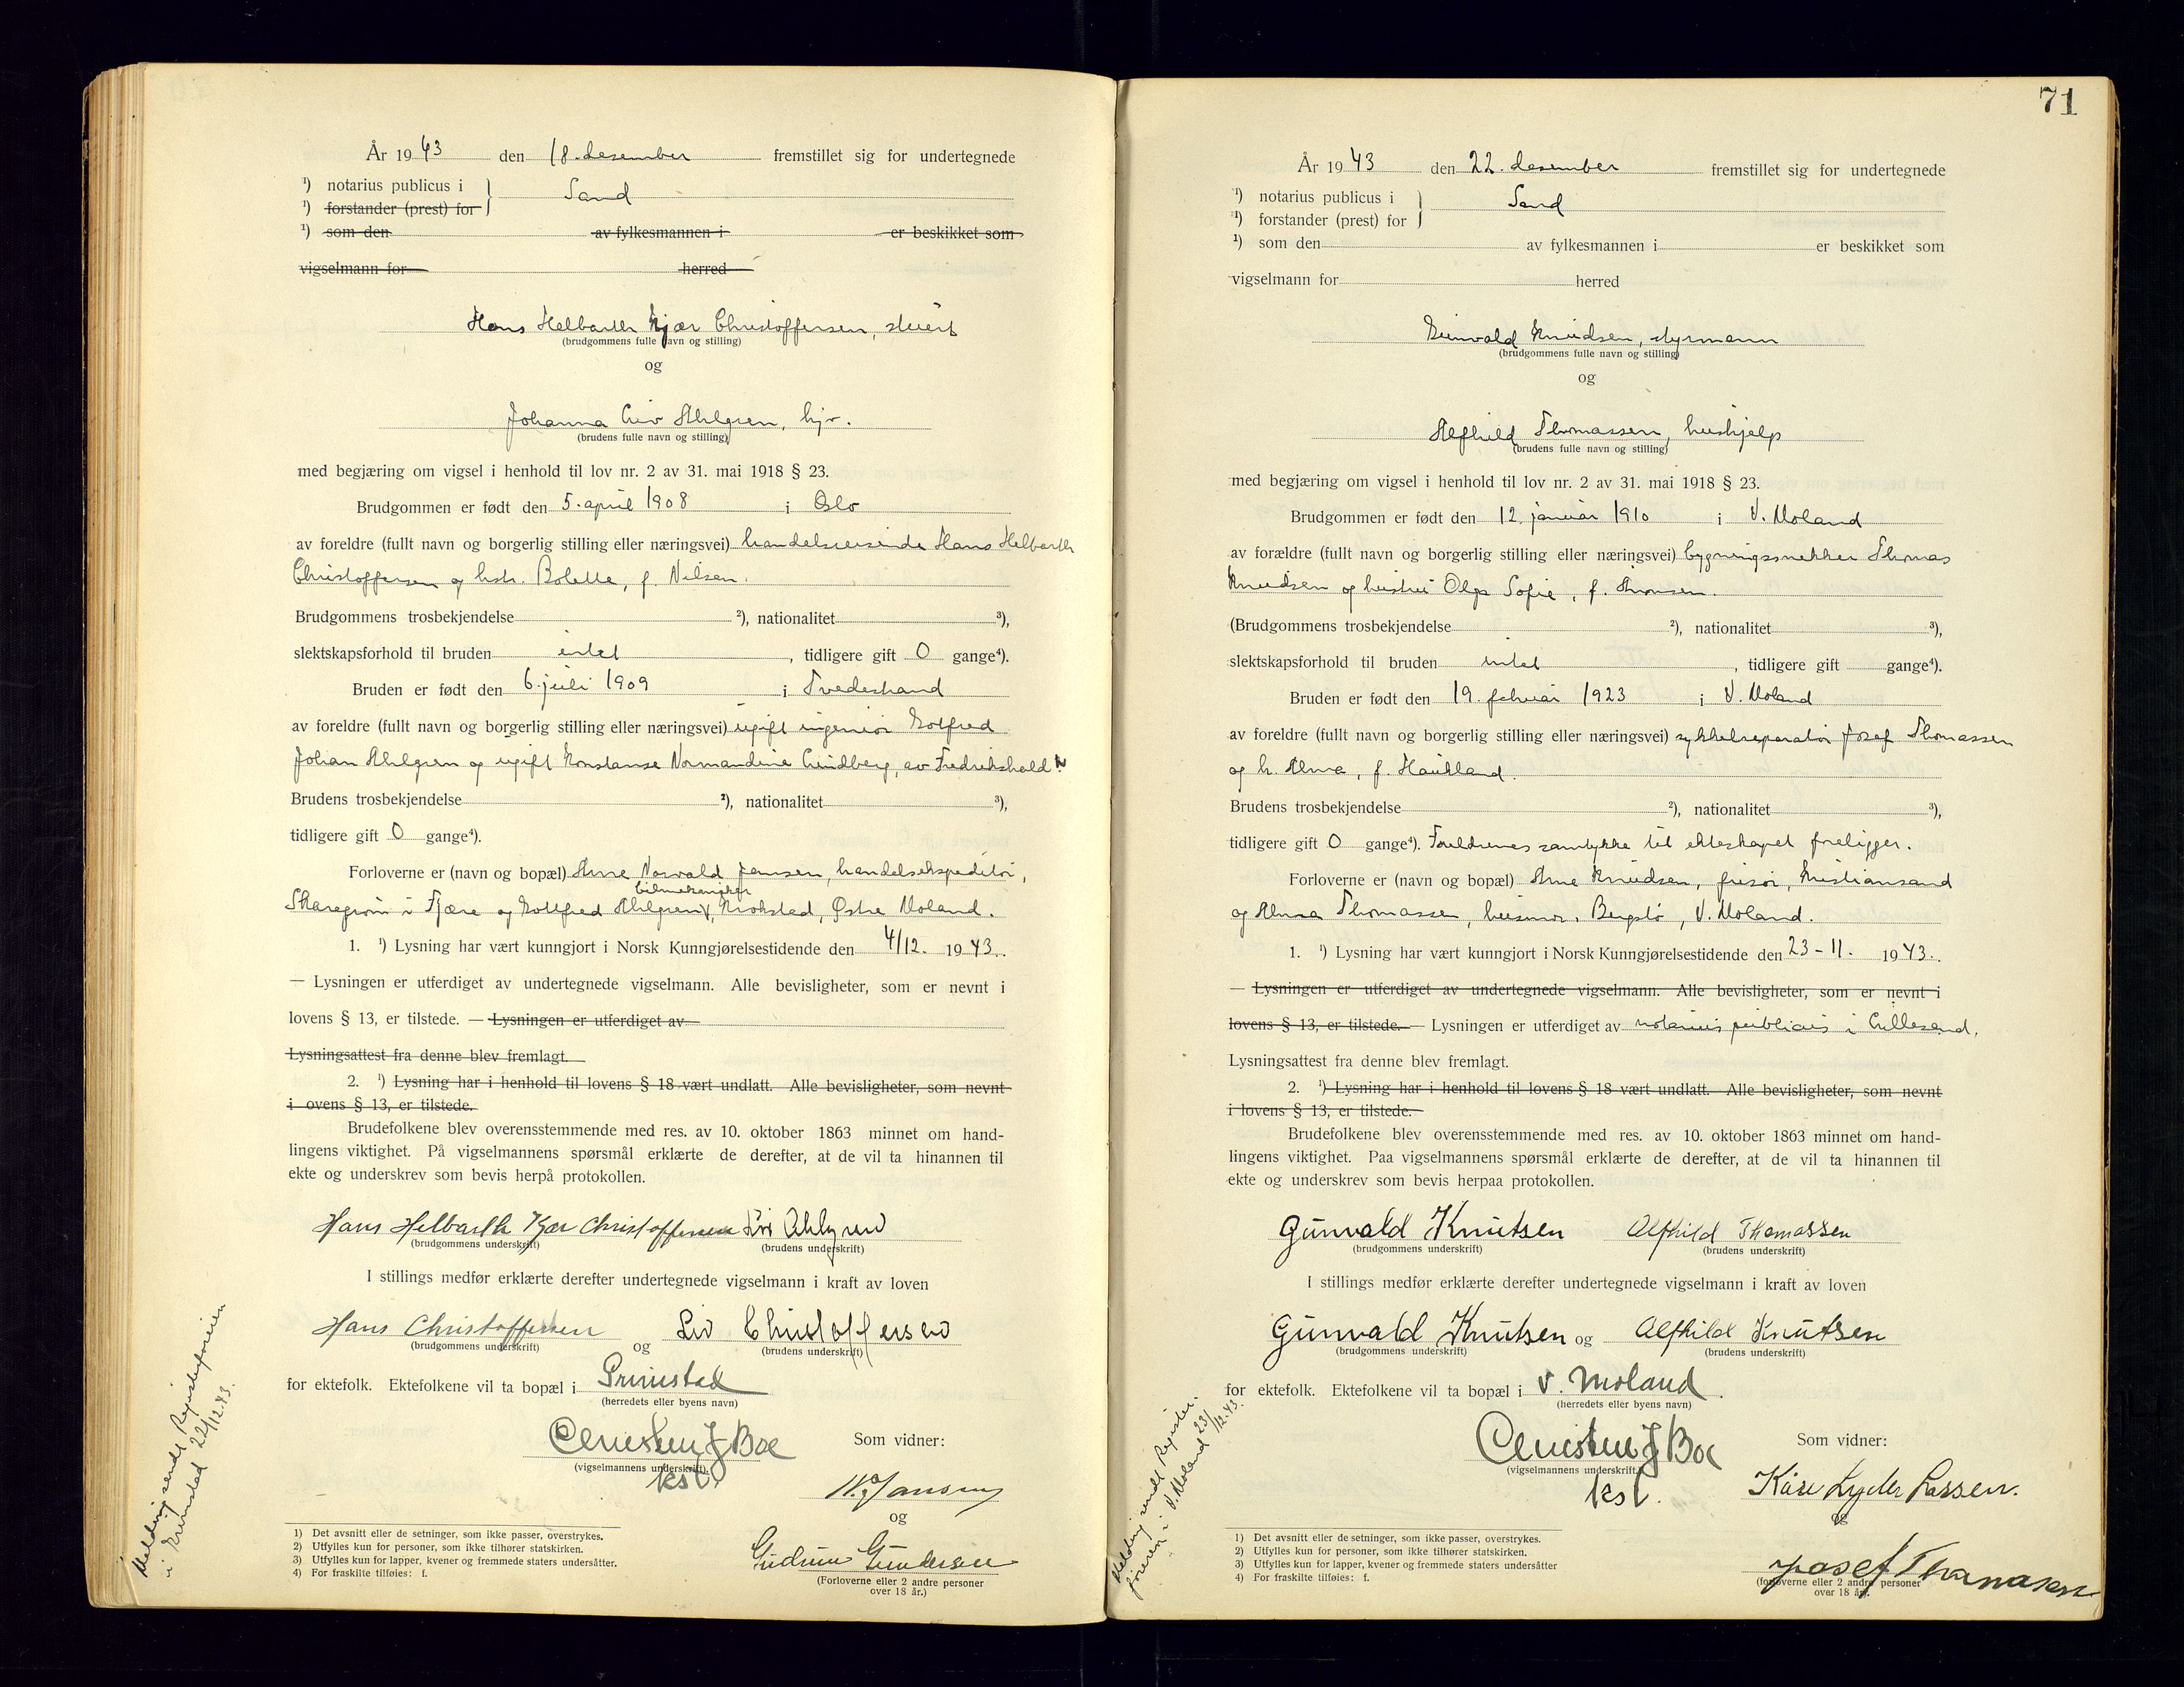 År 1943 den 18. desember fremstillet sig for undertegnede
¹) notarius publicus i } Sand
¹) forstander (prest) for
¹) som den av fylkesmannen i er beskikket som
vigselmann for herred
Hans Helbarth Kjær Christoffersen, stuert
(brudgommens fulle navn og stilling)
og
Johanna Liv Ahlgren, hjv.
(brudens fulle navn og stilling)
med begjæring om vigsel i henhold til lov nr. 2 av 31. mai 1918 § 23.
Brudgommen er født den 5. april 1908 i Oslo
av foreldre (fullt navn og borgerlig stilling eller næringsvei) handelsreisende Hans Helbarth
Christoffersen og hstr. Bolette, f. Nilsen.
Brudgommens trosbekjendelse ²), nationalitet ³),
slektskapsforhold til bruden intet, tidligere gift 0 gange⁴).
Bruden er født den 6. juli 1909 i Tvedestrand
av foreldre (fullt navn og borgerlig stilling eller næringsvei) ugift ingeniør Gotfred
Johan Ahlgren og ugift Konstanse Normandine Lindberg, av Fredrikshald.
Brudens trosbekjendelse ²), nationalitet ³),
tidligere gift 0 gange⁴).
Forloverne er (navn og bopæl) Arne Norvald Jensen, handelsekspeditør,
bilmekaniker
i Fjære og Gottfred Ahlgren, Krokstad, Østre Moland.
1. ¹) Lysning har vært kunngjort i Norsk Kunngjørelsestidende den 4/12. 1943.
— Lysningen er utferdiget av undertegnede vigselmann. Alle bevisligheter, som er nevnt i
lovens § 13, er tilstede. — Lysningen er utferdiget av
Lysningsattest fra denne blev fremlagt.
2. ¹) Lysning har i henhold til lovens § 18 vært undlatt. Alle bevisligheter, som nevnt
i ovens § 13, er tilstede.
Brudefolkene blev overensstemmende med res. av 10. oktober 1863 minnet om hand-
lingens viktighet. På vigselmannens spørsmål erklærte de derefter, at de vil ta hinannen til
ekte og underskrev som bevis herpå protokollen.
Hans Helbarth Kjær Christoffersen Liv Ahlgren
(brudgommens underskrift) (brudens underskrift)
I stillings medfør erklærte derefter undertegnede vigselmann i kraft av loven
Hans Christoffersen og Liv Christoffersen
(brudgommens underskrift) (brudens underskrift)
for ektefolk. Ektefolkene vil ta bopæl i Grimstad
(herredets eller byens navn)
Christen J Boe
(vigselmannens underskrift)
kst.
Som vidner:
og
Gudrun Gundersen
(Forloverne eller 2 andre personer
over 18 år.)
1) Det avsnitt eller de setninger, som ikke passer, overstrykes.
2) Utfylles kun for personer, som ikke tilhører statskirken.
3) Utfylles kun for lapper, kvener og fremmede staters undersåtter.
4) For fraskilte tilføies: f.
Melding sendt Registerføreren
i Grimstad 22/12.43.
71
År 1943 den 22. desember fremstillet sig for undertegnede
¹) notarius publicus i } Sand
¹) forstander (prest) for
¹) som den av fylkesmannen i er beskikket som
vigselmann for herred
Gunvald Knudsen, styrmann
(brudgommens fulle navn og stilling)
og
Alfhild Thomassen, hushjelp
(brudens fulle navn og stilling)
med begjæring om vigsel i henhold til lov nr. 2 av 31. mai 1918 § 23.
Brudgommen er født den 12. januar 1910 i V. Moland
av forældre (fullt navn og borgerlig stilling eller næringsvei) bygningssnekker Thomas
Knudsen og hustru Olga Sofie, f. Aronsen.
(Brudgommens trosbekjendelse ²), nationalitet ³),
slektskapsforhold til bruden intet, tidligere gift gange⁴).
Bruden er født den 19. februar 1923 i V. Moland
av foreldre (fullt navn og borgerlig stilling eller næringsvei) sykkelreparatør Josef Thomassen
og h. Alma, f. Haukland.
Brudens trosbekjendelse ²), nationalitet ³),
tidligere gift 0 gange⁴). Foreldrenes samtykke til ekteskapet foreligger.
Forloverne er (navn og bopæl) Arne Knudsen, frisør, Kristiansand
og Alma Thomassen, husmor, Bergstø, V. Moland.
1. ¹) Lysning har vært kunngjort i Norsk Kunngjørelsestidende den 23-11. 1943.
— Lysningen er utferdiget av undertegnede vigselmann. Alle bevisligheter, som er nevnt i
lovens § 13, er tilstede. — Lysningen er utferdiget av notarius publicus i Lillesand.
Lysningsattest fra denne blev fremlagt.
2. ¹) Lysning har i henhold til lovens § 18 vært undlatt. Alle bevisligheter, som nevnt
i lovens § 13, er tilstede.
Brudefolkene blev overensstemmende med res. av 10. oktober 1863 minnet om hand-
lingens viktighet. Paa vigselmannens spørsmål erklærte de derefter, at de vil ta hinannen til
ekte og underskrev som bevis herpaa protokollen.
Gunvald Knutsen Alfhild Thomassen
(brudgommens underskrift) (brudens underskrift)
I stillings medfør erklærte derefter undertegnede vigselmann i kraft av loven
Gunvald Knutsen og Alfhild Knutsen
(brudgommens underskrift) (brudens underskrift)
for ektefolk. Ektefolkene vil ta bopæl i V. Moland.
(herredets eller byens navn)
Christen J Boe
(vigselmannens underskrift.)
kst.
Som vidner:
Kåre Lyder Lassen.
og
Josef Thomassen
(forloverne eller 2 andre personer
over 18 år).
1) Det avsnitt eller de setninger, som ikke passer, overstrykes.
2) Utfylles kun for personer, som ikke tilhører statskirken.
3) Utfylles kun for lapper, kvener og fremmede staters undersåtter
4) For fraskilte tilføies: f.
Melding sendt Register-
føreren i V. Moland 23/12.43.